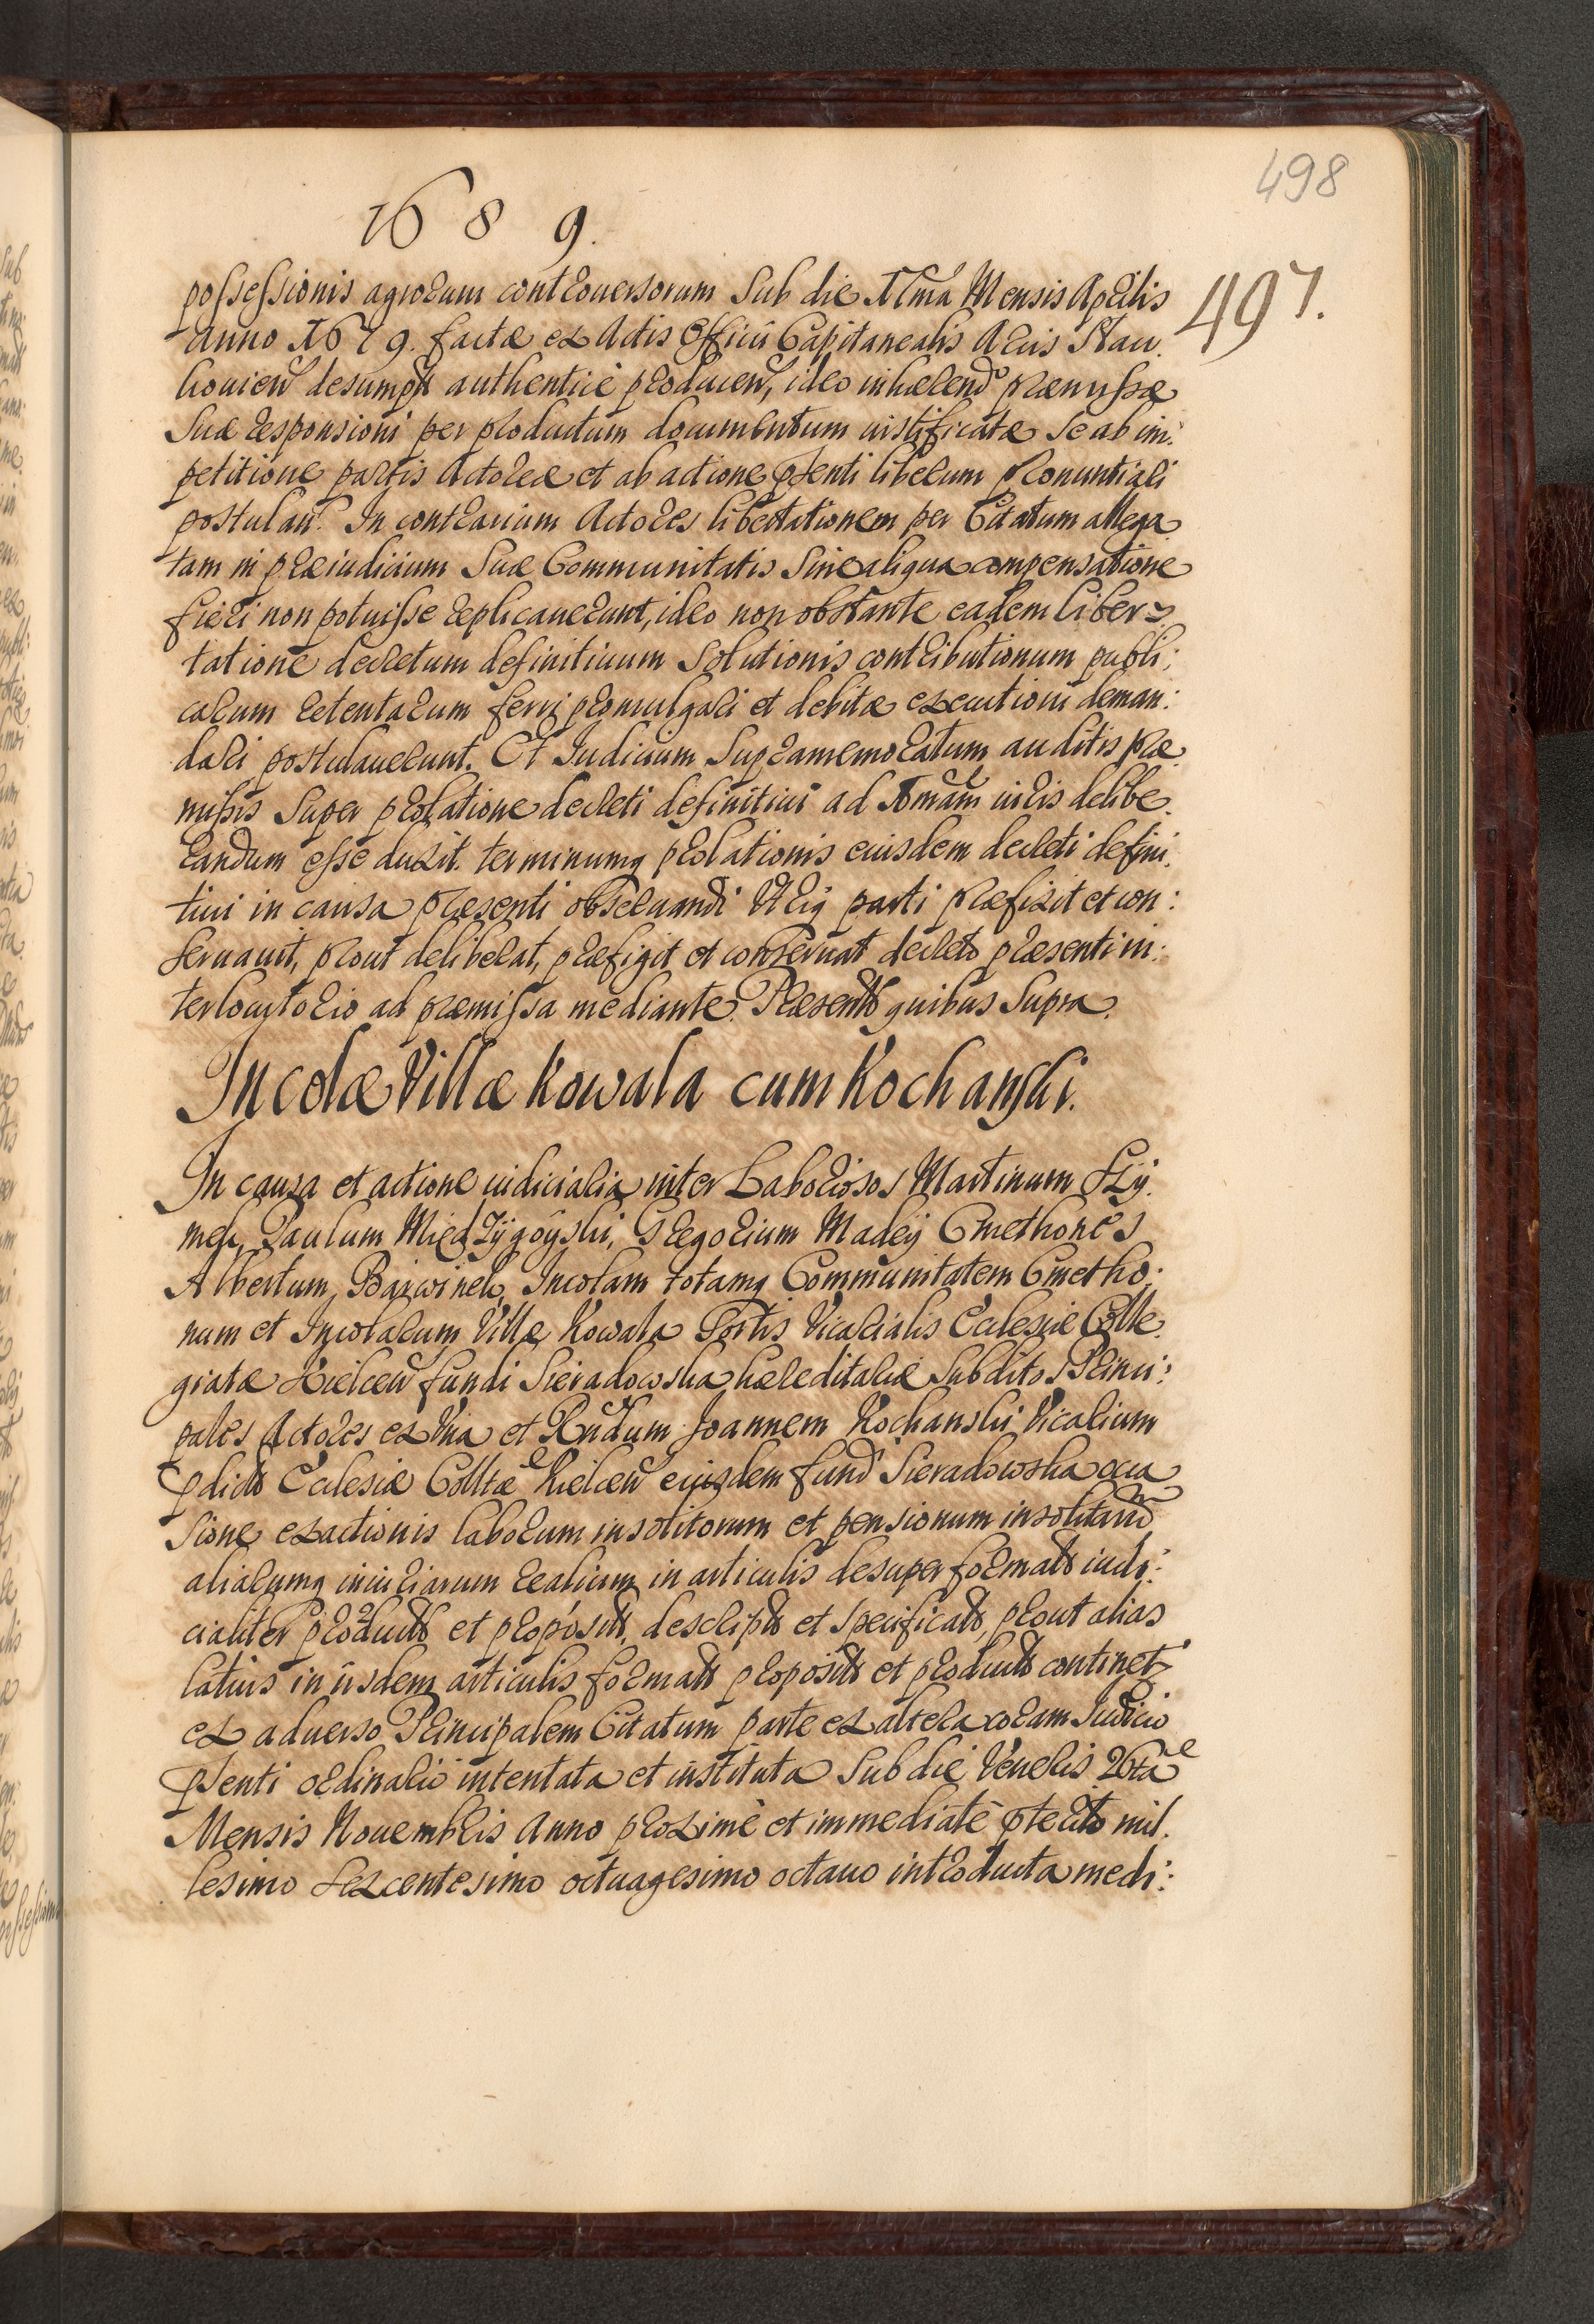 498
1689.
497.
possessionis agrorum controuersorum Sub die Mensis Aprilis
Anno 1679. factæ ex Actis Officii Capitanealis Arcis
desumpt authenticè producen, ideo inhærend præmissæ
Suæ responsioni per productum documentum iustificatæ Se ab im:
petitione partis Actoreæ et ab actione pñti liberum pronuntiari
postulau. In contrarium Actores libertationem per Citatum allega
tam in præiudicium Suæ Communitatis Sine aliqua compensatione
fieri non potuisse replicauerunt, ideo non obstante eadem liber=
tatione decretum definitiuum Solutionis contributionum publi:
carum retentarum ferri promulgari et debitæ executioni deman:
dari postulauerunt. Et Iudicium Supramemoratum auditis præ
missis Super prolatione decreti definitiui ad iuris delibe
randum esse duxit. terminumq prolationis eiusdem decreti defini
tiui in causa præsenti obseruandi Vtriq parti præfixit et con:
seruauit, prout deliberat, præfigit et conseruat decreto præsenti in:
terlocutorio ad præmissa mediante. Præsentib quibus Supra.
Incolæ Villæ Kowala cum Kochanski.
In causa et actione iudiciaria inter Laboriosos Martinum Szÿ
mek, Paulum Międzÿgoÿski, Gregorium Madeÿ Cmethones
Albertum Barwinek, Incolam totamq Communitatem Cmetho:
num et Incolarum Villæ Kowala Sortis Vicarialis Ecclesiæ Colle
giatæ Kielcen fundi Sieradowska hæreditariæ Subditos Princi:
pales Actores ex Vna et Rndum Joannem Kochanski Vicarium
pdictæ Ecclesiæ Colltæ Kielcen eiusdem fund Sieradowska occa
sione exactionis laborum insolitorum et pensionum insolitarũ
aliarumq iniuriarum realium in articulis desuper formatis iudi:
cialiter productis et propositis, descriptis et specificatis, prout alias
latius in iisdem articulis formatis propositis et productis continet
ex aduerso Principalem Citatum parte ex altera coram Iudicio
pñti ordinario intentata et instituta Sub die Veneris 26tâ
Mensis Nouembris Anno proximè et immediatè ptertio mil
lesimo Sexcentesimo octuagesimo octauo introducta medi: